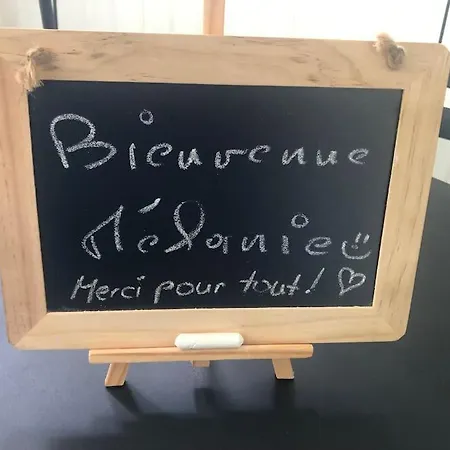 Bienvenue
Mélanie☺
Merci pour tout! ♡